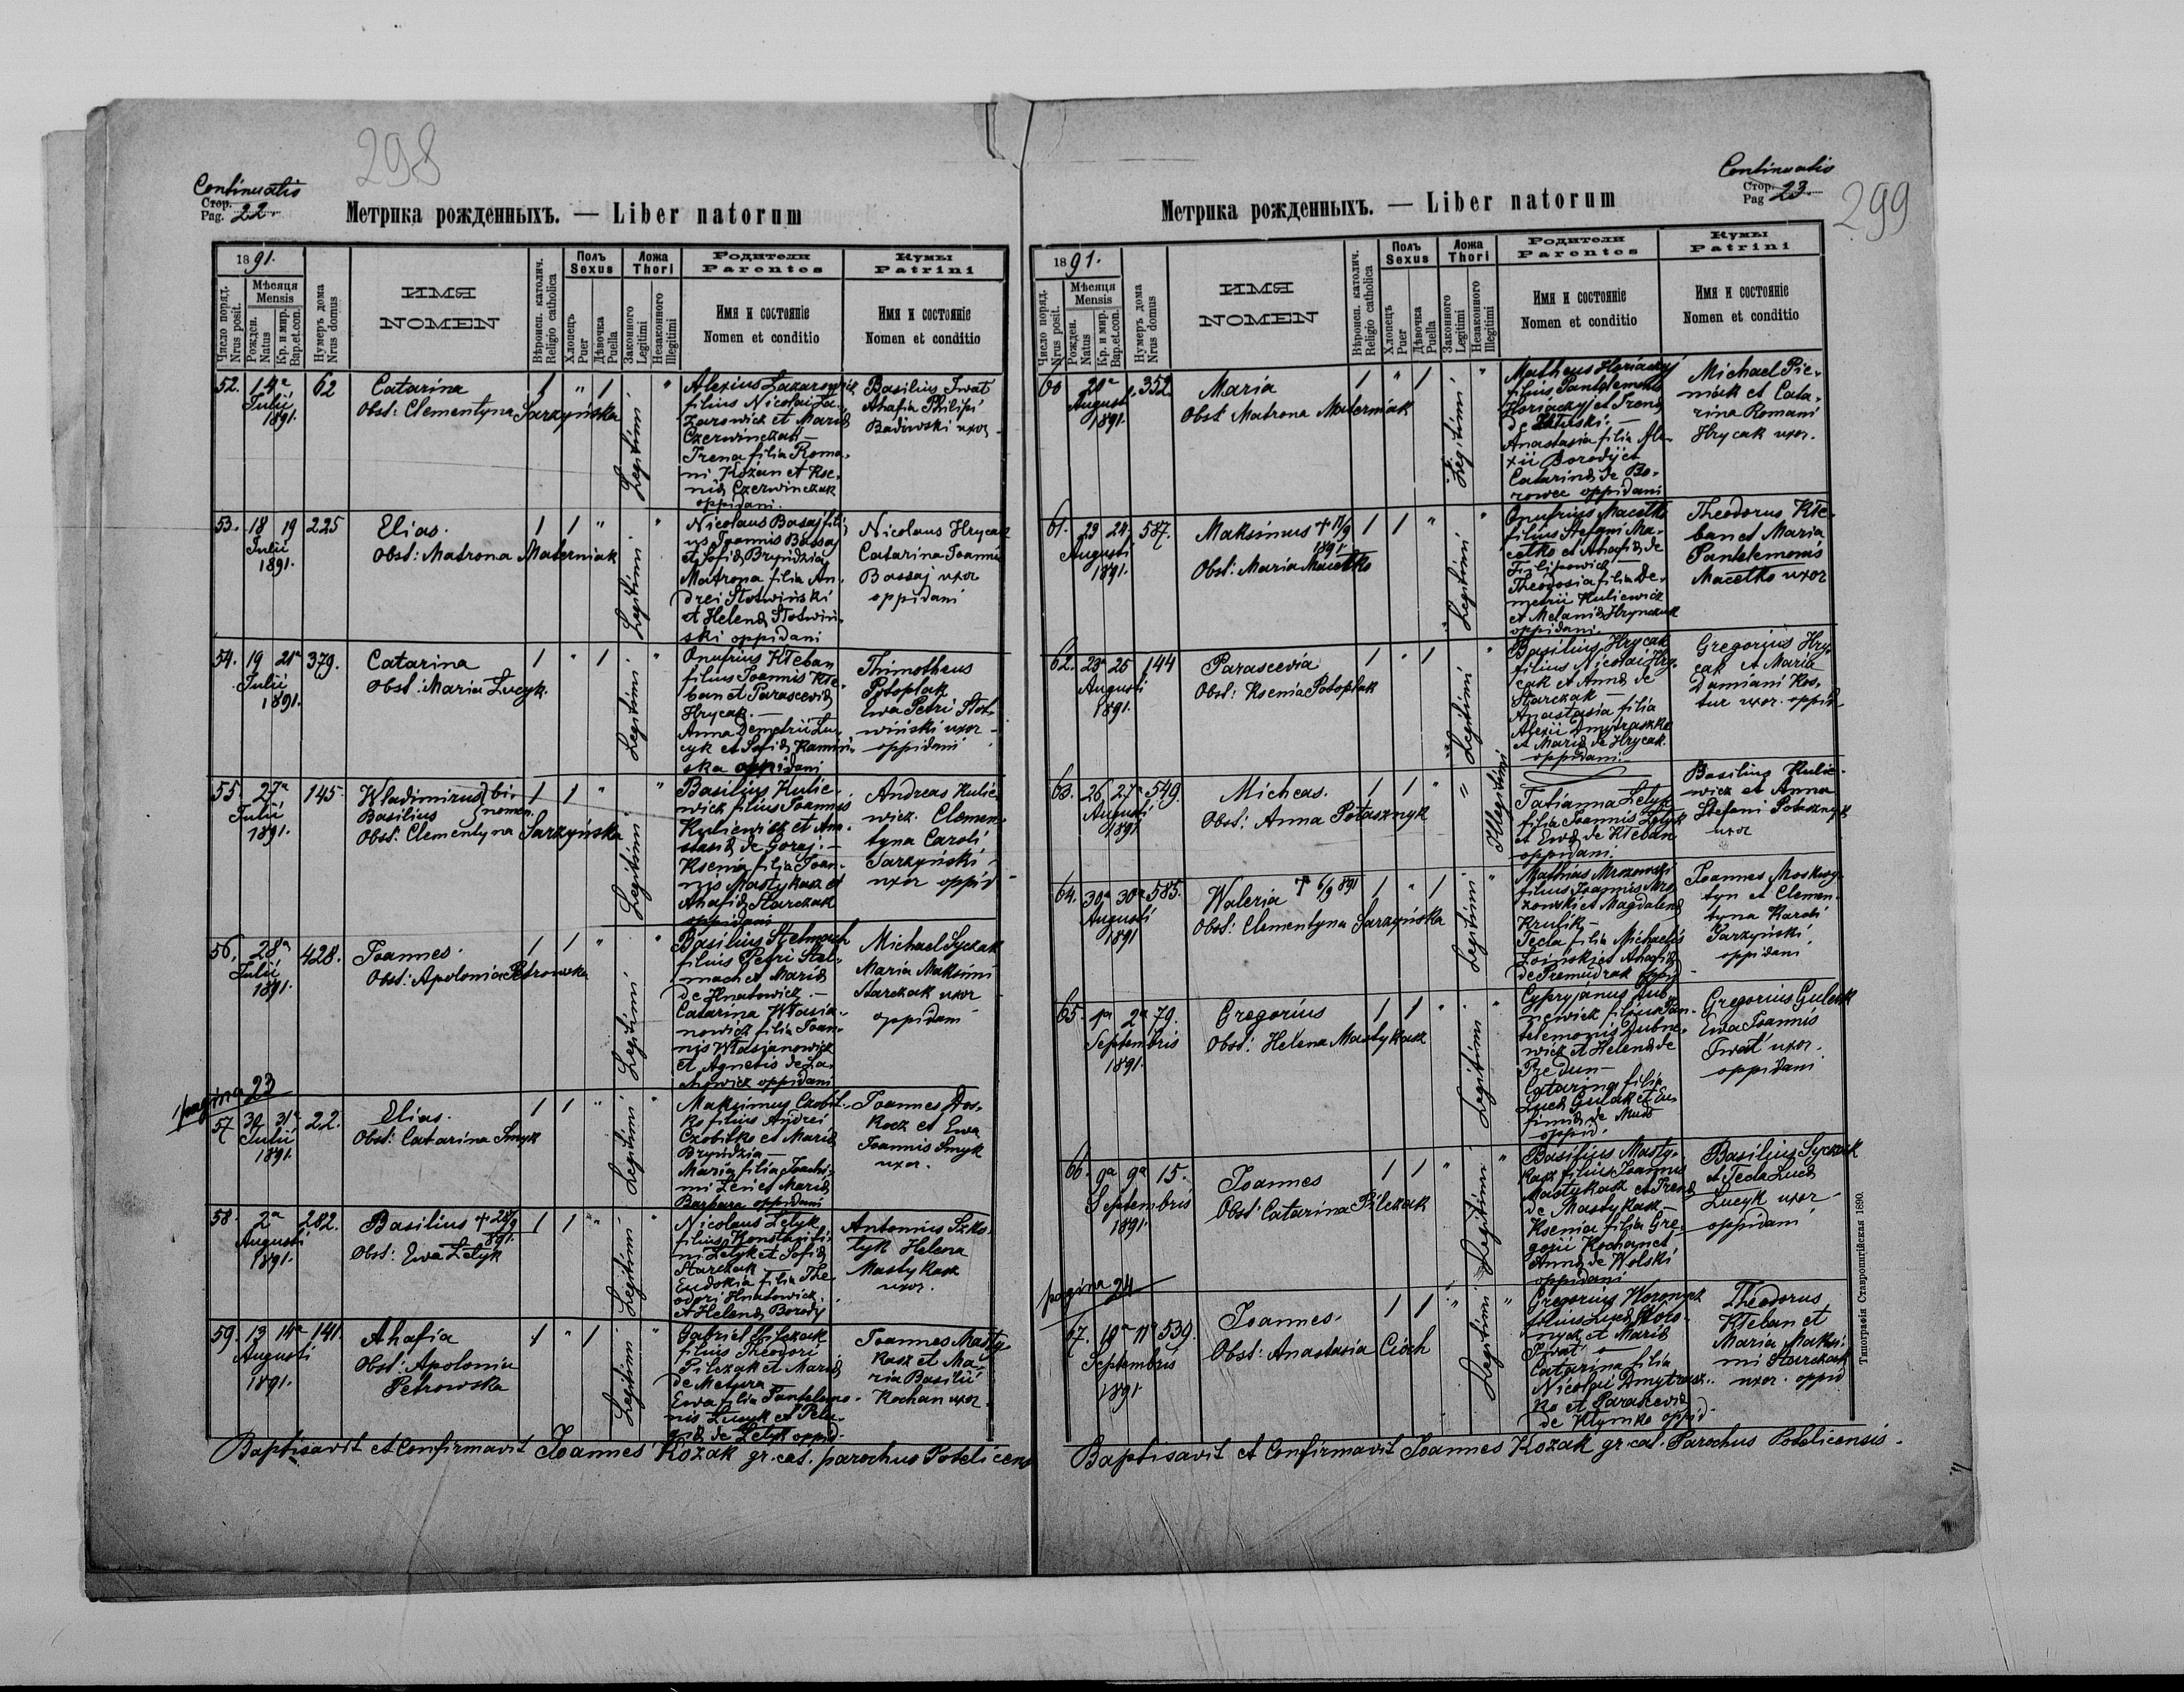 298
Continuatio
Стор.
Pag. 22.
Метрика рожденныхъ. — Liber natorum
1891.
Число поряд.
Nrus posit.
Мѣсяця
Mensis
Рожден.
Natus
Кр. и мир.
Bap.et.con.
Нумеръ дома
Nrus domus
ИМЯ
NOMEN
Вѣроисп. католич.
Religio catholica
Полъ
Sexus
Хлопецъ
Puer
Дѣвочка
Puella
Ложа
Thori
Законного
Legitimi
Незаконного
Illegitimi
Родители
Parentes
Имя и состояніе
Nomen et conditio
Кумы
Patrini
Имя и состояніе
Nomen et conditio
52. 14a 62 Catarina 1 " 1 "
Julii
1891.
Obst: Clementyna Sarzyńska
Legitimi
Alexius Lazarowicz
filius Nicolai La-
zarowicz et Maria
Czerwinczak —
Irena filia Roma-
ni Kożan et Kse-
nia Czerwinczak
oppidani.
Basilius Iwat
Ahafia Philipi
Badowski uxor
53. 18 19 225 Elias. 1 1 " "
Julii
1891.
Obst: Matrona Materniak
Legitimi
Nicolaus Basaj fili-
us Joannis Bassaj
et Sofia Bryndzia
Matrona filia An-
drei Słotwiński
et Helena Słotwiń-
ski oppidani
Nicolaus Hrycak
Catarina Joannis
Bassaj uxor
oppidani
54. 19 21a 379. Catarina 1 " 1 "
Julii
1891.
Obst: Maria Lucyk.
Legitimi
Onufrius Kłeban
filius Joannis Kłe-
ban et Parascevia
Hrycak. —
Anna Demetrii Lu-
cyk et Sofia Kamiń-
ska oppidani
Thimotheus
Potoplak
Ewa Petri Słot-
wiński uxor
oppidani
55. 27a 145. Wladimirus bi- 1 1 " "
Julii
1891.
Basilius nomen.
Obst: Clementyna Sarzyńska
Legitimi
Basilius Kulie-
wicz filius Joannis
Kuliewicz et Ana-
stasia de Goraj. —
Ksenia filia Joan-
nis Mastykasz et
Ahafia Starczak
oppidani
Andreas Kulie-
wicz. Clemen-
tyna Caroli
Sarzyński
uxor oppid
56. 28a 428. Joannes. 1 1 " "
Julii
1891.
Obst: Apolonia Petrowska
Legitimi
Basilius Stelmach
filius Petri Stel-
mach et Maria
de Hnatowicz. —
Catarina Własia-
nowicz filia Joan-
nis Własianowicz
et Agnetis de
oppidani
Michael Syczak
Maria Maksimi
Starczak uxor
oppidani
pagina 23
57 30 31a 22. Elias. 1 1 " "
Julii
1891.
Obst: Catarina Smyk
Legitimi
Maksimus Czobit-
ko filius Andrei
Czobitko et Maria
Bryndzia —
Maria filia Joachi-
mi Len et Maria
Barbara oppidani
Joannes Dos-
kocz et Ewa
Joannis Smyk
uxor.
58. 2a 282. Basilius + 28/9 1 1 " "
Augusti
1891.
891.
Obst: Ewa Letyk
Legitimi
Nicolaus Letyk
filius Konstanti-
ni Letyk et Sofia
Starczak —
Eudokia filia The-
odori Hnatowicz.
et Helena Borody
Antonius Szko-
tyk Helena
Mastykasz
uxor.
59. 13 14a 141. Ahafia 1 " 1 "
Augusti
1891.
Obst: Apolonia
Petrowska
Legitimi
Gabriel Pilczak
filius Theodori
Pilczak et Maria
de Metera —
Ewa filia Pantelemo-
nis Lucyk et Pela-
gia de Letyk oppid.
Joannes Masty-
kasz et Ma-
ria Basilii
Kochan uxor.
Baptisavit et Confirmavit Joannes Kozak gr. cat. parochus Potelicens
Continuatio
Стор.
Pag 23.
299
Метрика рожденныхъ. — Liber natorum
1891.
Число поряд.
Nrus posit.
Мѣсяця
Mensis
Рожден.
Natus
Кр. и мир.
Bap.et.con.
Нумеръ дома
Nrus domus
ИМЯ
NOMEN
Вѣроисп. католич.
Religio catholica
Полъ
Sexus
Хлопецъ
Puer
Дѣвочка
Puella
Ложа
Thori
Законного
Legitimi
Незаконного
Illegitimi
Родители
Parentes
Имя и состояніе
Nomen et conditio
Кумы
Patrini
Имя и состояніе
Nomen et conditio
60 20a 352. Maria 1 " 1 "
Augusti
1891.
Obst: Matrona Materniak
Legitimi
Matheus Horiackyj
filius Pantelemonis
Horiackyj et Irena
de —
Anastasia filia Ale-
xii Borodij et
Catarina de Bo-
rowec oppidani
Michael Pie-
niák et Cata-
rina Romani
Hrycak uxor.
61. 23 24 587. Maksimus + 11/9 1 1 " "
Augusti
1891.
1891.
Obst: Maria Macetko
Legitimi
Onufrius Macetko
filius Stefani Ma-
cetko et Ahafia de
Filipowicz —
Theodosia filia De-
metrii Kuliewicz
et Melania Hrynczuk
oppidani.
Theodorus Kłe-
ban et Maria
Pantelemonis
Macetko uxor
62. 23a 25 144 Parascevia 1 " 1 "
Augusti
1891.
Obst: Ksenia Potoplak
Legitimi
Basilius Hrycak
filius Nicolai Hry-
cak et Anna de
Starczak —
Anastasia filia
Alexii Dmytraszko
et Maria de Hrycak.
oppidani. —
Gregorius Hry-
cak et Maria
Damiani Kos-
tur uxor. oppid
63. 26 27a 549. Micheas. 1 1 " "
Augusti
1891.
Obst: Anna Potasznyk
Illegitimi
Tatianna Letyk
filia Joannis Letyk
et Ewa de Kłeban
oppidani.
Basilius Kulie-
wicz et Anna
Stefani Potasznyk
uxor
64. 30a 30a 585. Waleria + 6/9 891 1 " 1 "
Augusti
1891
Obst: Clementyna Sarzyńska
Legitimi
Mathias Mrozowski
filius Joannis Mro-
zowski et Magdalena
Krulik —
Tecla filia Michaelis
et Ahafia
de Premudrak oppid
Joannes Moskwy-
tyn et Clemen-
tyna Karoli
Sarzyński.
oppidani
65. 1a 2a 79. Gregorius 1 1 " "
Septembris
1891.
Obst: Helena Mastykasz
Legitimi
Cypryjanus Dub-
newicz filius Pan-
telemonis Dubne-
wicz et Helena de
Predun —
Catarina filia
Lucæ Gulak et Eu-
fimia de
oppid.
Gregorius Gulak
Ewa Joannis
Iwat uxor.
oppidani
66. 9a 9a 15. Joannes 1 1 " "
Septembris
1891.
Obst: Catarina Pilczak
Legitimi
Basilius Masty-
kasz filius Joannis
Mastykasz et Irena
de Mastykasz —
Ksenia filia Gre-
gorii Kochan et
Anna de Wolski
oppidani
Basilius Syczak
et Tecla Lucæ
Lucyk uxor
oppidani
pagina 24
67. 10a 11a 539. Joannes. 1 1 " "
Septembris
1891.
Obst: Anastasia Cióch
Legitimi
Gregorius Woronycz
filius Lucæ Woro-
nycz et Maria
Iwat —
Catarina filia
Nicolai Dmytrasz-
ko et Parascevia
de Klymko oppid.
Theodorus
Kłeban et
Maria Maksi-
mi Starczak
uxor. oppid
Типографія Ставропигійская 1890.
Baptisavit et Confirmavit Joannes Kozak gr. cat. Parochus Potelicensis.